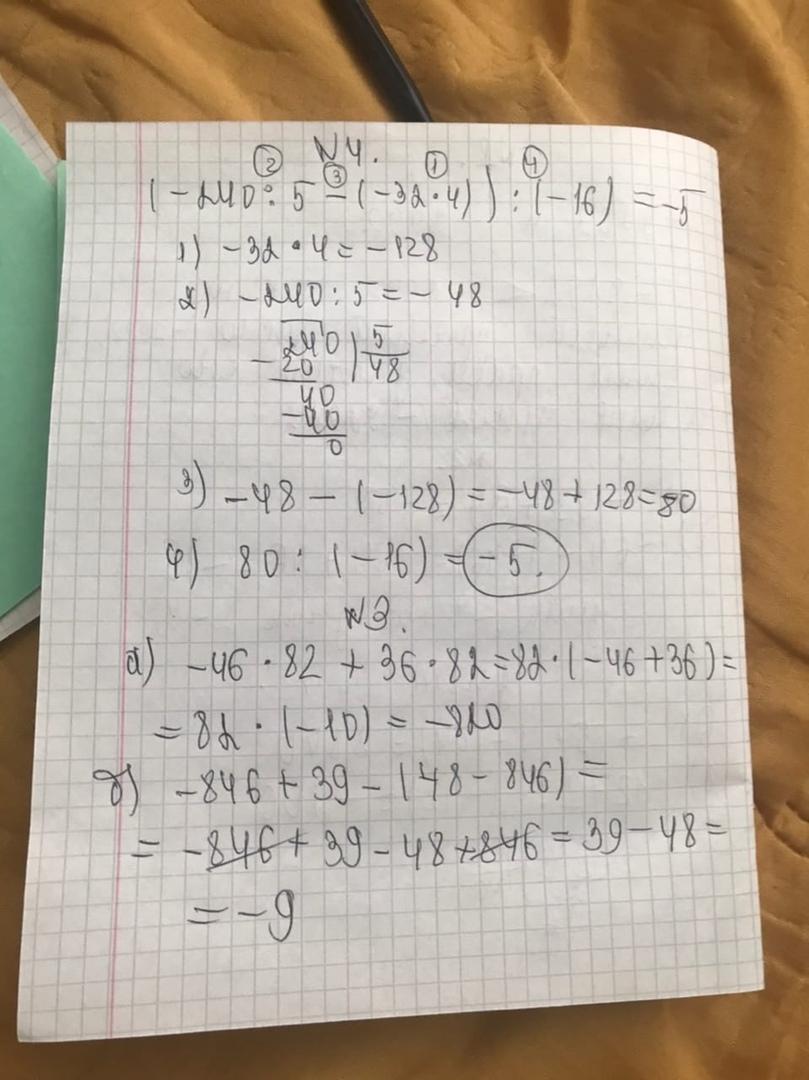 N4.
② ③ ① ④
(-240 : 5 - (-32 · 4)) : (-16) = -5
1) -32 · 4 = -128
2) -240 : 5 = - 48
240 | 5
- 20 | 48
40
- 40
0
3) -48 - (-128) = -48 + 128 = 80
4) 80 : (-16) = -5.
N3.
а) -46 · 82 + 36 · 82 = 82 · (-46 + 36) =
= 82 · (-10) = -820
б) -846 + 39 - (48 - 846) =
= -846 + 39 - 48 + 846 = 39 - 48 =
= -9